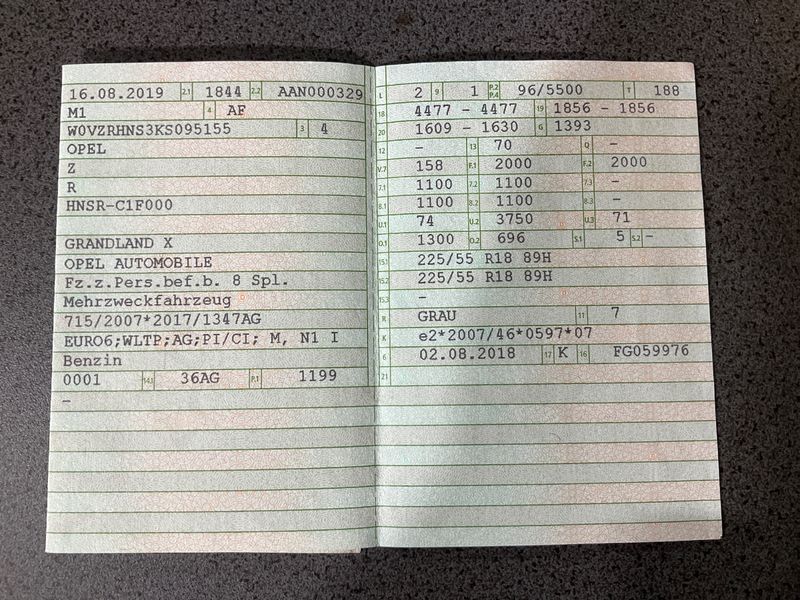 16.08.2019 2.1 1844 2.2 AAN000329
M1 4 AF
W0VZRHNS3KS095155 3 4
OPEL
Z
R
HNSR-C1F000
GRANDLAND X
OPEL AUTOMOBILE
Fz.z.Pers.bef.b. 8 Spl.
Mehrzweckfahrzeug
715/2007*2017/1347AG
EURO6;WLTP;AG;PI/CI; M, N1 I
Benzin
0001 14.1 36AG P.1 1199
–
L 2 9 1 P.2 P.4 96/5500 T 188
18 4477 – 4477 19 1856 – 1856
20 1609 – 1630 G 1393
12 – 13 70 Q –
V.7 158 F.1 2000 F.2 2000
7.1 1100 7.2 1100 7.3 –
8.1 1100 8.2 1100 8.3 –
U.1 74 U.2 3750 U.3 71
O.1 1300 O.2 696 S.1 5 S.2 –
15.1 225/55 R18 89H
15.2 225/55 R18 89H
15.3 –
R GRAU 11 7
K e2*2007/46*0597*07
6 02.08.2018 17 K 16 FG059976
21